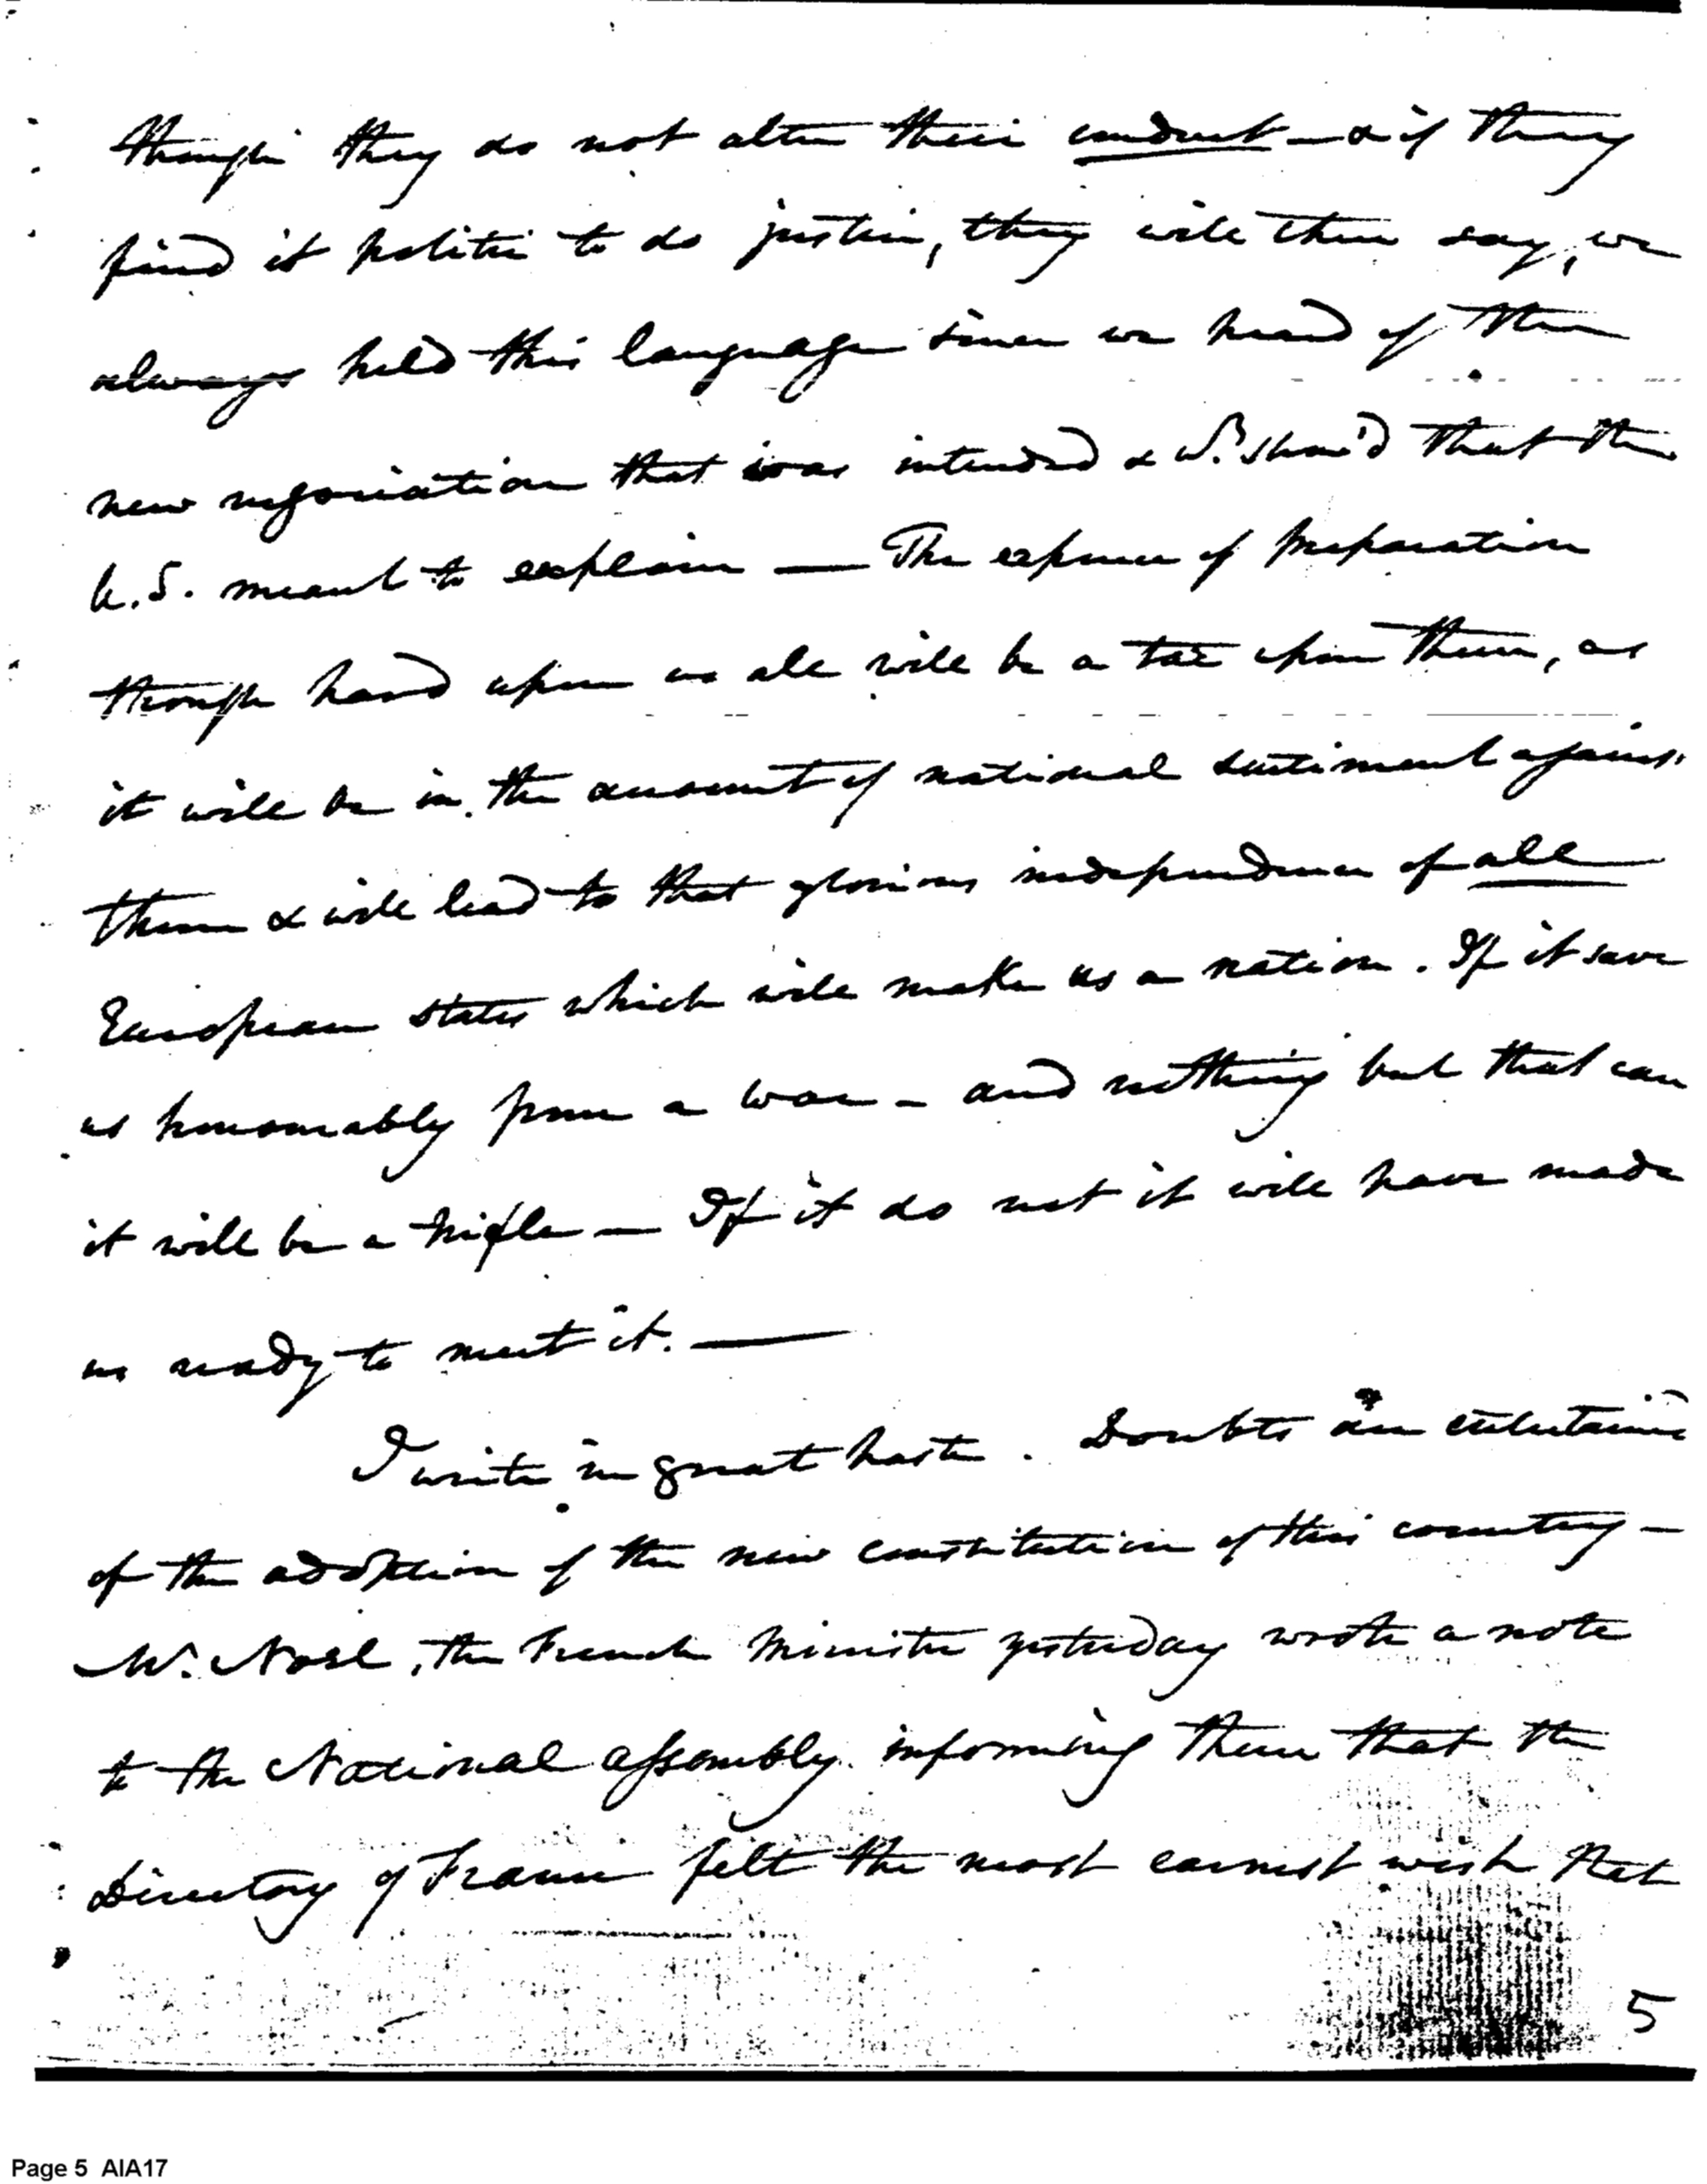 though they do not alter their conduct — & if they
find it politic to do justice, they will then say, we
always held this language since we heard of the
new negociation that was intended & shew'd that the
U.S. meant to explain — The expence of preparation
though hard upon us all will be a tax upon them, as
it will be in the amount of national sentiment against
them & will lead to that glorious independence of all
European states which will make us a nation. If it save
us honourably from a war - and nothing but that can
it will be a trifle — If it do not it will have made
us ready to meet it. —
I write in great haste. Doubts are entertained
of the adoption of the new constitution of this country —
Mr. Noel, the French Minister yesterday wrote a note
to the National assembly informing them that the
Directory of France felt the most earnest wish that
5
Page 5 AIA17